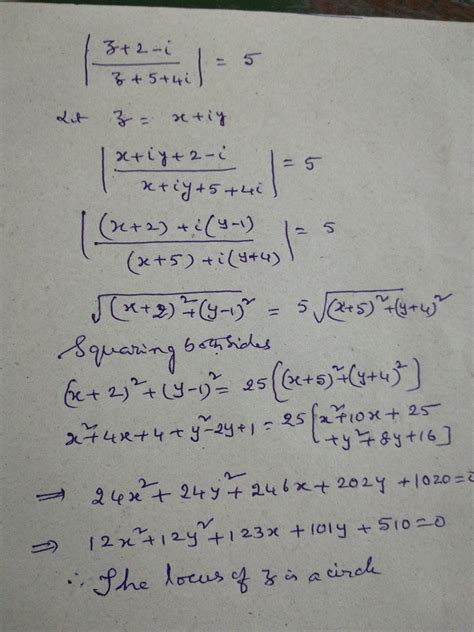 |z+2-i / z+5+4i| = 5
Let z = x+iy
|x+iy+2-i / x+iy+5+4i| = 5
|(x+2)+i(y-1) / (x+5)+i(y+4)| = 5
√(x+2)²+(y-1)² = 5√(x+5)²+(y+4)²
Squaring both sides
(x+2)²+(y-1)² = 25[(x+5)²+(y+4)²]
x²+4x+4+y²-2y+1 = 25[x²+10x+25
+y²+8y+16]
⇒ 24x²+24y²+246x+202y+1020=0
⇒ 12x²+12y²+123x+101y+510=0
∴ The locus of z is a circle